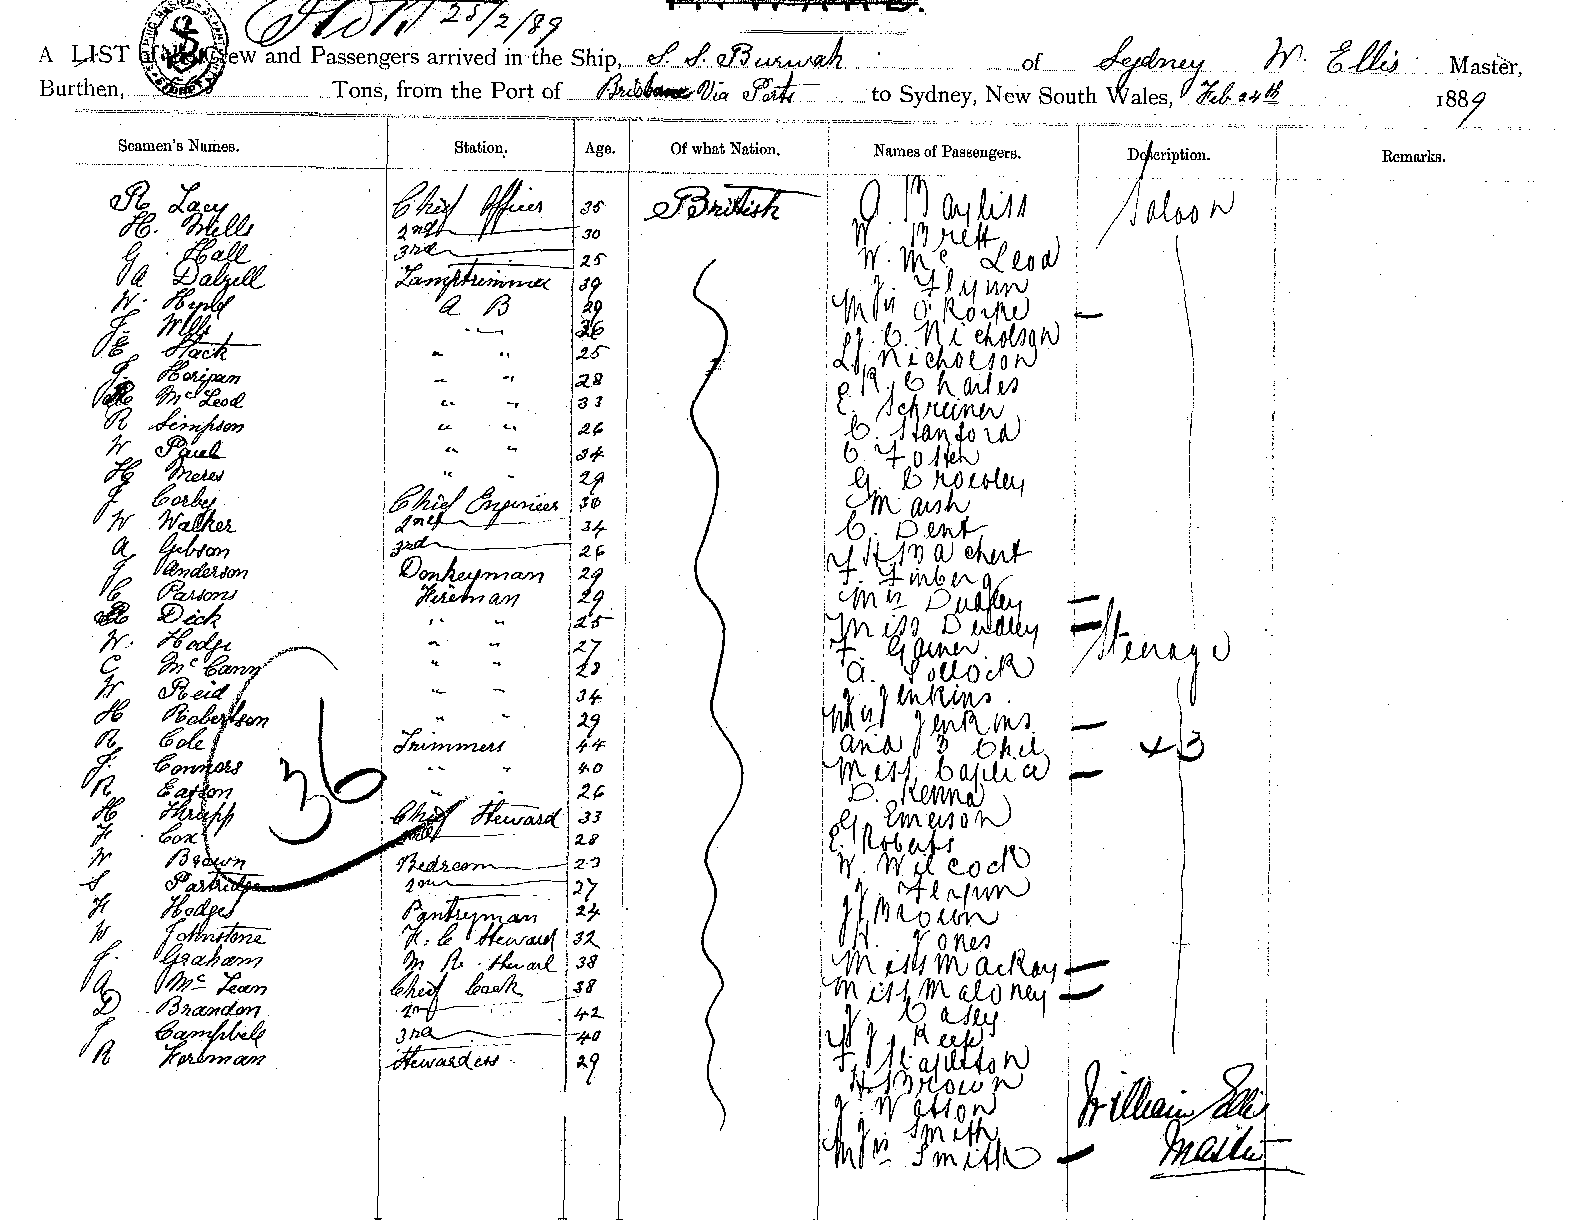 25/2/89
A LIST of the Crew and Passengers arrived in the Ship, S. S. Burwah of Sydney W. Ellis Master,
Burthen, Tons, from the Port of Brisbane Via Ports to Sydney, New South Wales, Feb 24th 1889
Seamen's Names. Station. Age. Of what Nation. Names of Passengers. Description. Remarks.
R Lacy Chief Officer 35 British J Bayliss Saloon
H. Mells 2nd 30 W. Brett
G Hall 3rd 25 W. Mc Leod
A Dalzell Lamptrimmer 39 Flynn
W. Hynd A B 29 Mrs O'Rorke
J. Wills " " 26 C. Nicholson
E Stack " " 25 Nicholson
J. Horigan " " 28 E R. Charles
Mc Leod " " 33 E. Schreiner
R Simpson " " 26 C. Stanford
W Paul " " 34 C. Foster
H Meres " " 29 G. Crowley
J Corby Chief Engineer 36 Marsh
W Walker 2nd 34 C. Dent
A Gibson 3rd 26
J Anderson Donkeyman 29 F. Finberg
C Parsons Fireman 29 Mrs Dudley
Dick " " 25 Miss Dudley
W. Hodge " " 27 F Garner Steerage
C McCann " " 28 A. Pollock
W Reid " " 34 J Jenkins
H Robertson " " 29 Mrs Jenkins
R Cole Trimmers 44 and 3 Chil +3
J. Connors " " 40 Miss Caplice
R Easson " " 26 D. Kenna
H Thrupp Chief Steward 33 G Emerson
F Cox 2nd 28 E. Roberts
36
W Brown Bedroom 23 W. Wilcock
S Partridge 2nd 27 J Flynn
F Hodges Pantryman 24 J Brown
W Johnstone F. C Steward 32 H. Jones
J. Graham M R. Steward 38 Miss Mackay
A McLean Chief Cook 38 Miss Maloney
D Brandon 2nd 42 J Casey
J Campbell 3rd 40
R Foreman Stewardess 29 F Stapleton
H Brown
J. Watson
J Smith
Mrs Smith
William Ellis
Master